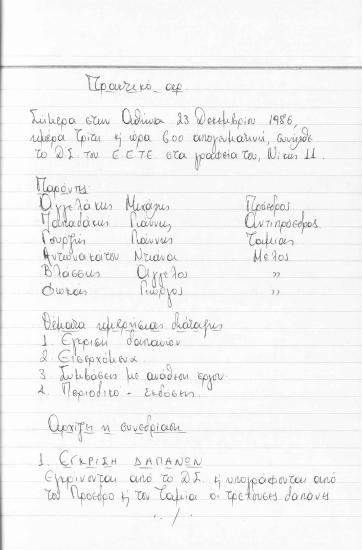 Πρακτικό αρ.
Σήμερα στην Αθήνα 23 Δεκεμβρίου 1986,
ημέρα Τρίτη κ ώρα 6.00 απογευματινή, συνήλθε
το Δ.Σ. του Ε.Ε.Τ.Ε. στα γραφεία του, Νίκης 11.
Παρόντες:
Αγγελάκης Μιχάλης Πρόεδρος
Παπαδάκης Γιάννης Αντιπρόεδρος
Γουρζής Γιάννης Ταμίας
Αντωνακάτου Ντιάνα Μέλος
Βλάσσης Άγγελος "
Φωκάς Γιώργος "
Θέματα ημερήσιας διάταξης
1. Έγκριση δαπανών
2 Εισερχόμενα
3 Συμβάσεις με ανάθεση έργου
2. Περιοδικό - Εκδόσεις.
Αρχίζει η συνεδρίαση
1. ΕΓΚΡΙΣΗ ΔΑΠΑΝΩΝ
Εγκρίνονται από το Δ.Σ. κ υπογράφονται από
τον Πρόεδρο κ τον Ταμία οι τρέχουσες δαπάνες
./.